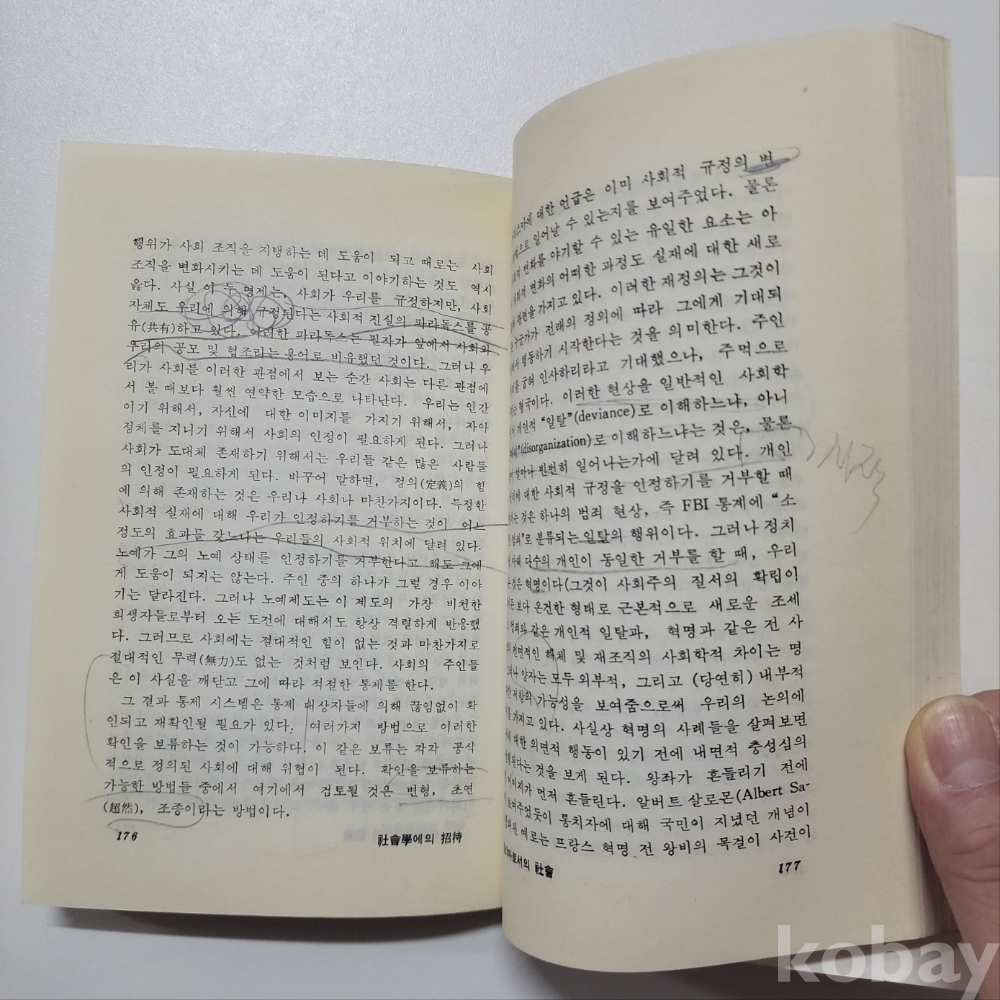 행위가 사회 조직을 지탱하는 데 도움이 되고 때로는 사회
조직을 변화시키는 데 도움이 된다고 이야기하는 것도 역시
옳다. 사실 이 두 명제는, 사회가 우리를 규정하지만, 사회
자체도 우리에 의해 규정된다는 사회적 진실의 파라독스를 공
유(共有)하고 있다. 이러한 파라독스는 필자가 앞에서 사회와
우리의 공모 및 협조라는 용어로 비유했던 것이다. 그러나 우
리가 사회를 이러한 관점에서 보는 순간 사회는 다른 관점에
서 볼 때보다 훨씬 연약한 모습으로 나타난다. 우리는 인간
이기 위해서, 자신에 대한 이미지를 가지기 위해서, 자아
정체를 지니기 위해서 사회의 인정이 필요하게 된다. 그러나
사회가 도대체 존재하기 위해서는 우리들 같은 많은 사람들
의 인정이 필요하게 된다. 바꾸어 말하면, 정의(定義)의 힘
에 의해 존재하는 것은 우리나 사회나 마찬가지이다. 특정한
사회적 실재에 대해 우리가 인정하기를 거부하는 것이 어느
정도의 효과를 갖느냐는 우리들의 사회적 위치에 달려 있다.
노예가 그의 노예 상태를 인정하기를 거부한다고 해도 그에
게 도움이 되지는 않는다. 주인 중의 하나가 그럴 경우 이야
기는 달라진다. 그러나 노예제도는 이 제도의 가장 비천한
희생자들로부터 오는 도전에 대해서도 항상 격렬하게 반응했
다. 그러므로 사회에는 절대적인 힘이 없는 것과 마찬가지로
절대적인 무력(無力)도 없는 것처럼 보인다. 사회의 주인들
은 이 사실을 깨닫고 그에 따라 적절한 통제를 한다.
그 결과 통제 시스템은 통제 대상자들에 의해 끊임없이 확
인되고 재확인될 필요가 있다. 여러가지 방법으로 이러한
확인을 보류하는 것이 가능하다. 이 같은 보류는 각각 공식
적으로 정의된 사회에 대해 위협이 된다. 확인을 보류하는
가능한 방법들 중에서 여기에서 검토될 것은 변형, 초연
(超然), 조종이라는 방법이다.
176 社會學에의 招待
대한 언급은 이미 사회적 규정의 변
일어날 수 있는지를 보여주었다. 물론
변화를 야기할 수 있는 유일한 요소는 아
변화의 어떠한 과정도 실재에 대한 새로
관련을 가지고 있다. 이러한 재정의는 그것이
누군가가 전래의 정의에 따라 그에게 기대되
행동하기 시작한다는 것을 의미한다. 주인
굽혀 인사하리라고 기대했으나, 주먹으로
형국이다. 이러한 현상을 일반적인 사회학
개인적 “일탈”(deviance)로 이해하느냐, 아니
(disorganization)로 이해하느냐는 것은, 물론
얼마나 빈번히 일어나는가에 달려 있다. 개인
대한 사회적 규정을 인정하기를 거부할 때
것은 하나의 범죄 현상, 즉 FBI 통계에 “소
로 분류되는 일탈의 행위이다. 그러나 정치
다수의 개인이 동일한 거부를 할 때, 우리
것은 혁명이다(그것이 사회주의 질서의 확립이
보다 온건한 형태로 근본적으로 새로운 조세
같은 개인적 일탈과, 혁명과 같은 전 사
전면적인 해체 및 재조직의 사회학적 차이는 명
양자는 모두 외부적, 그리고 (당연히) 내부적
저항의 가능성을 보여줌으로써 우리의 논의에
가지고 있다. 사실상 혁명의 사례들을 살펴보면
대한 외면적 행동이 있기 전에 내면적 충성심의
된다는 것을 보게 된다. 왕좌가 흔들리기 전에
이미지가 먼저 흔들린다. 알버트 살로몬(Albert Sa-
보여주었듯이 통치자에 대해 국민이 지녔던 개념이
예로는 프랑스 혁명 전 왕비의 목걸이 사건이
로서의 社會 177
시작
kobay